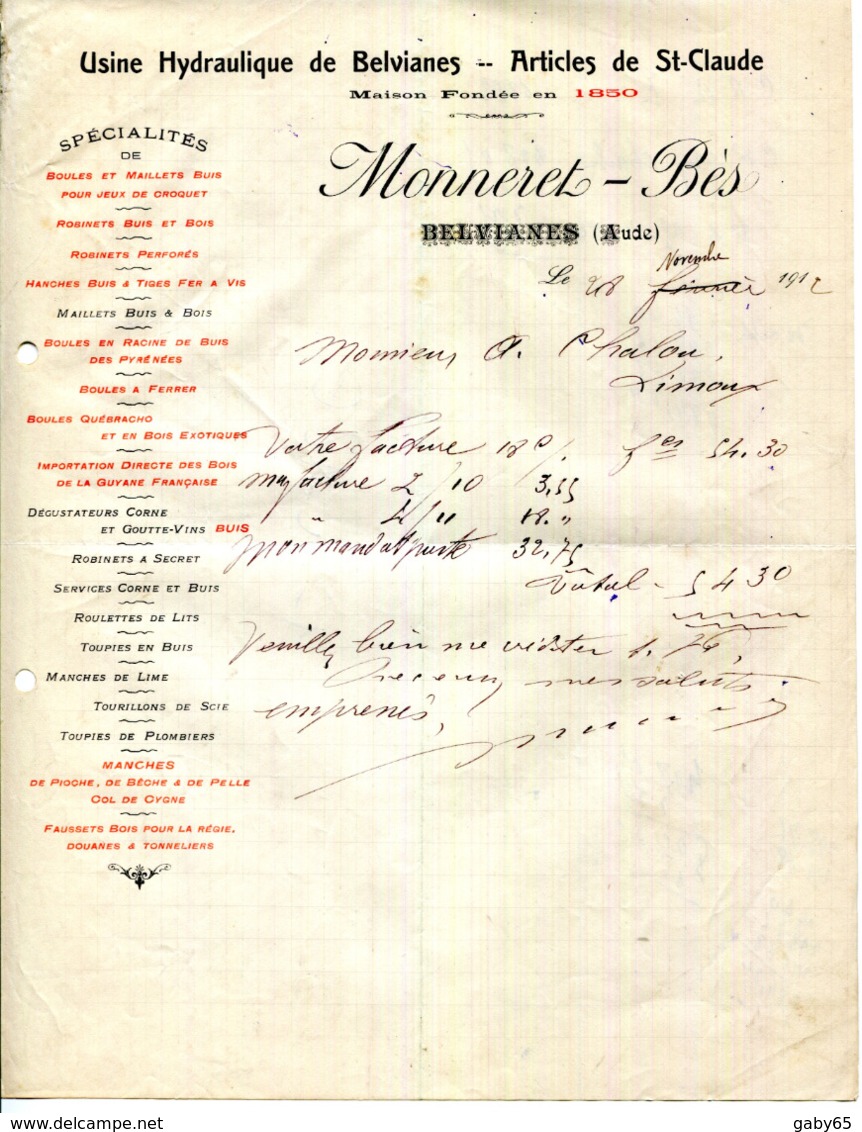 Usine Hydraulique de Belvianes -- Articles de St-Claude
Maison Fondée en 1850
Monneret - Bès
BELVIANES (Aude)
Novembre
Le 28 février 1912
SPÉCIALITÉS
DE
BOULES ET MAILLETS BUIS
POUR JEUX DE CROQUET
ROBINETS BUIS ET BOIS
ROBINETS PERFORÉS
HANCHES BUIS & TIGES FER A VIS
MAILLETS BUIS & BOIS
BOULES EN RACINE DE BUIS
DES PYRÉNÉES
BOULES A FERRER
BOULES QUÉBRACHO
ET EN BOIS EXOTIQUES
IMPORTATION DIRECTE DES BOIS
DE LA GUYANE FRANÇAISE
DÉGUSTATEURS CORNE
ET GOUTTE-VINS BUIS
ROBINETS A SECRET
SERVICES CORNE ET BUIS
ROULETTES DE LITS
TOUPIES EN BUIS
MANCHES DE LIME
TOURILLONS DE SCIE
TOUPIES DE PLOMBIERS
MANCHES
DE PIOCHE, DE BÊCHE & DE PELLE
COL DE CYGNE
FAUSSETS BOIS POUR LA RÉGIE,
DOUANES & TONNELIERS
Monsieur A. Chalou,
Limoux
Votre facture 18 54.30
ma facture 2/10 3,55
" 4/11 18. "
mon mandat poste 32,75
Total - 54 30
Veuillez bien me
Recevez mes saluts
empressés,
delcampe.net
gaby65